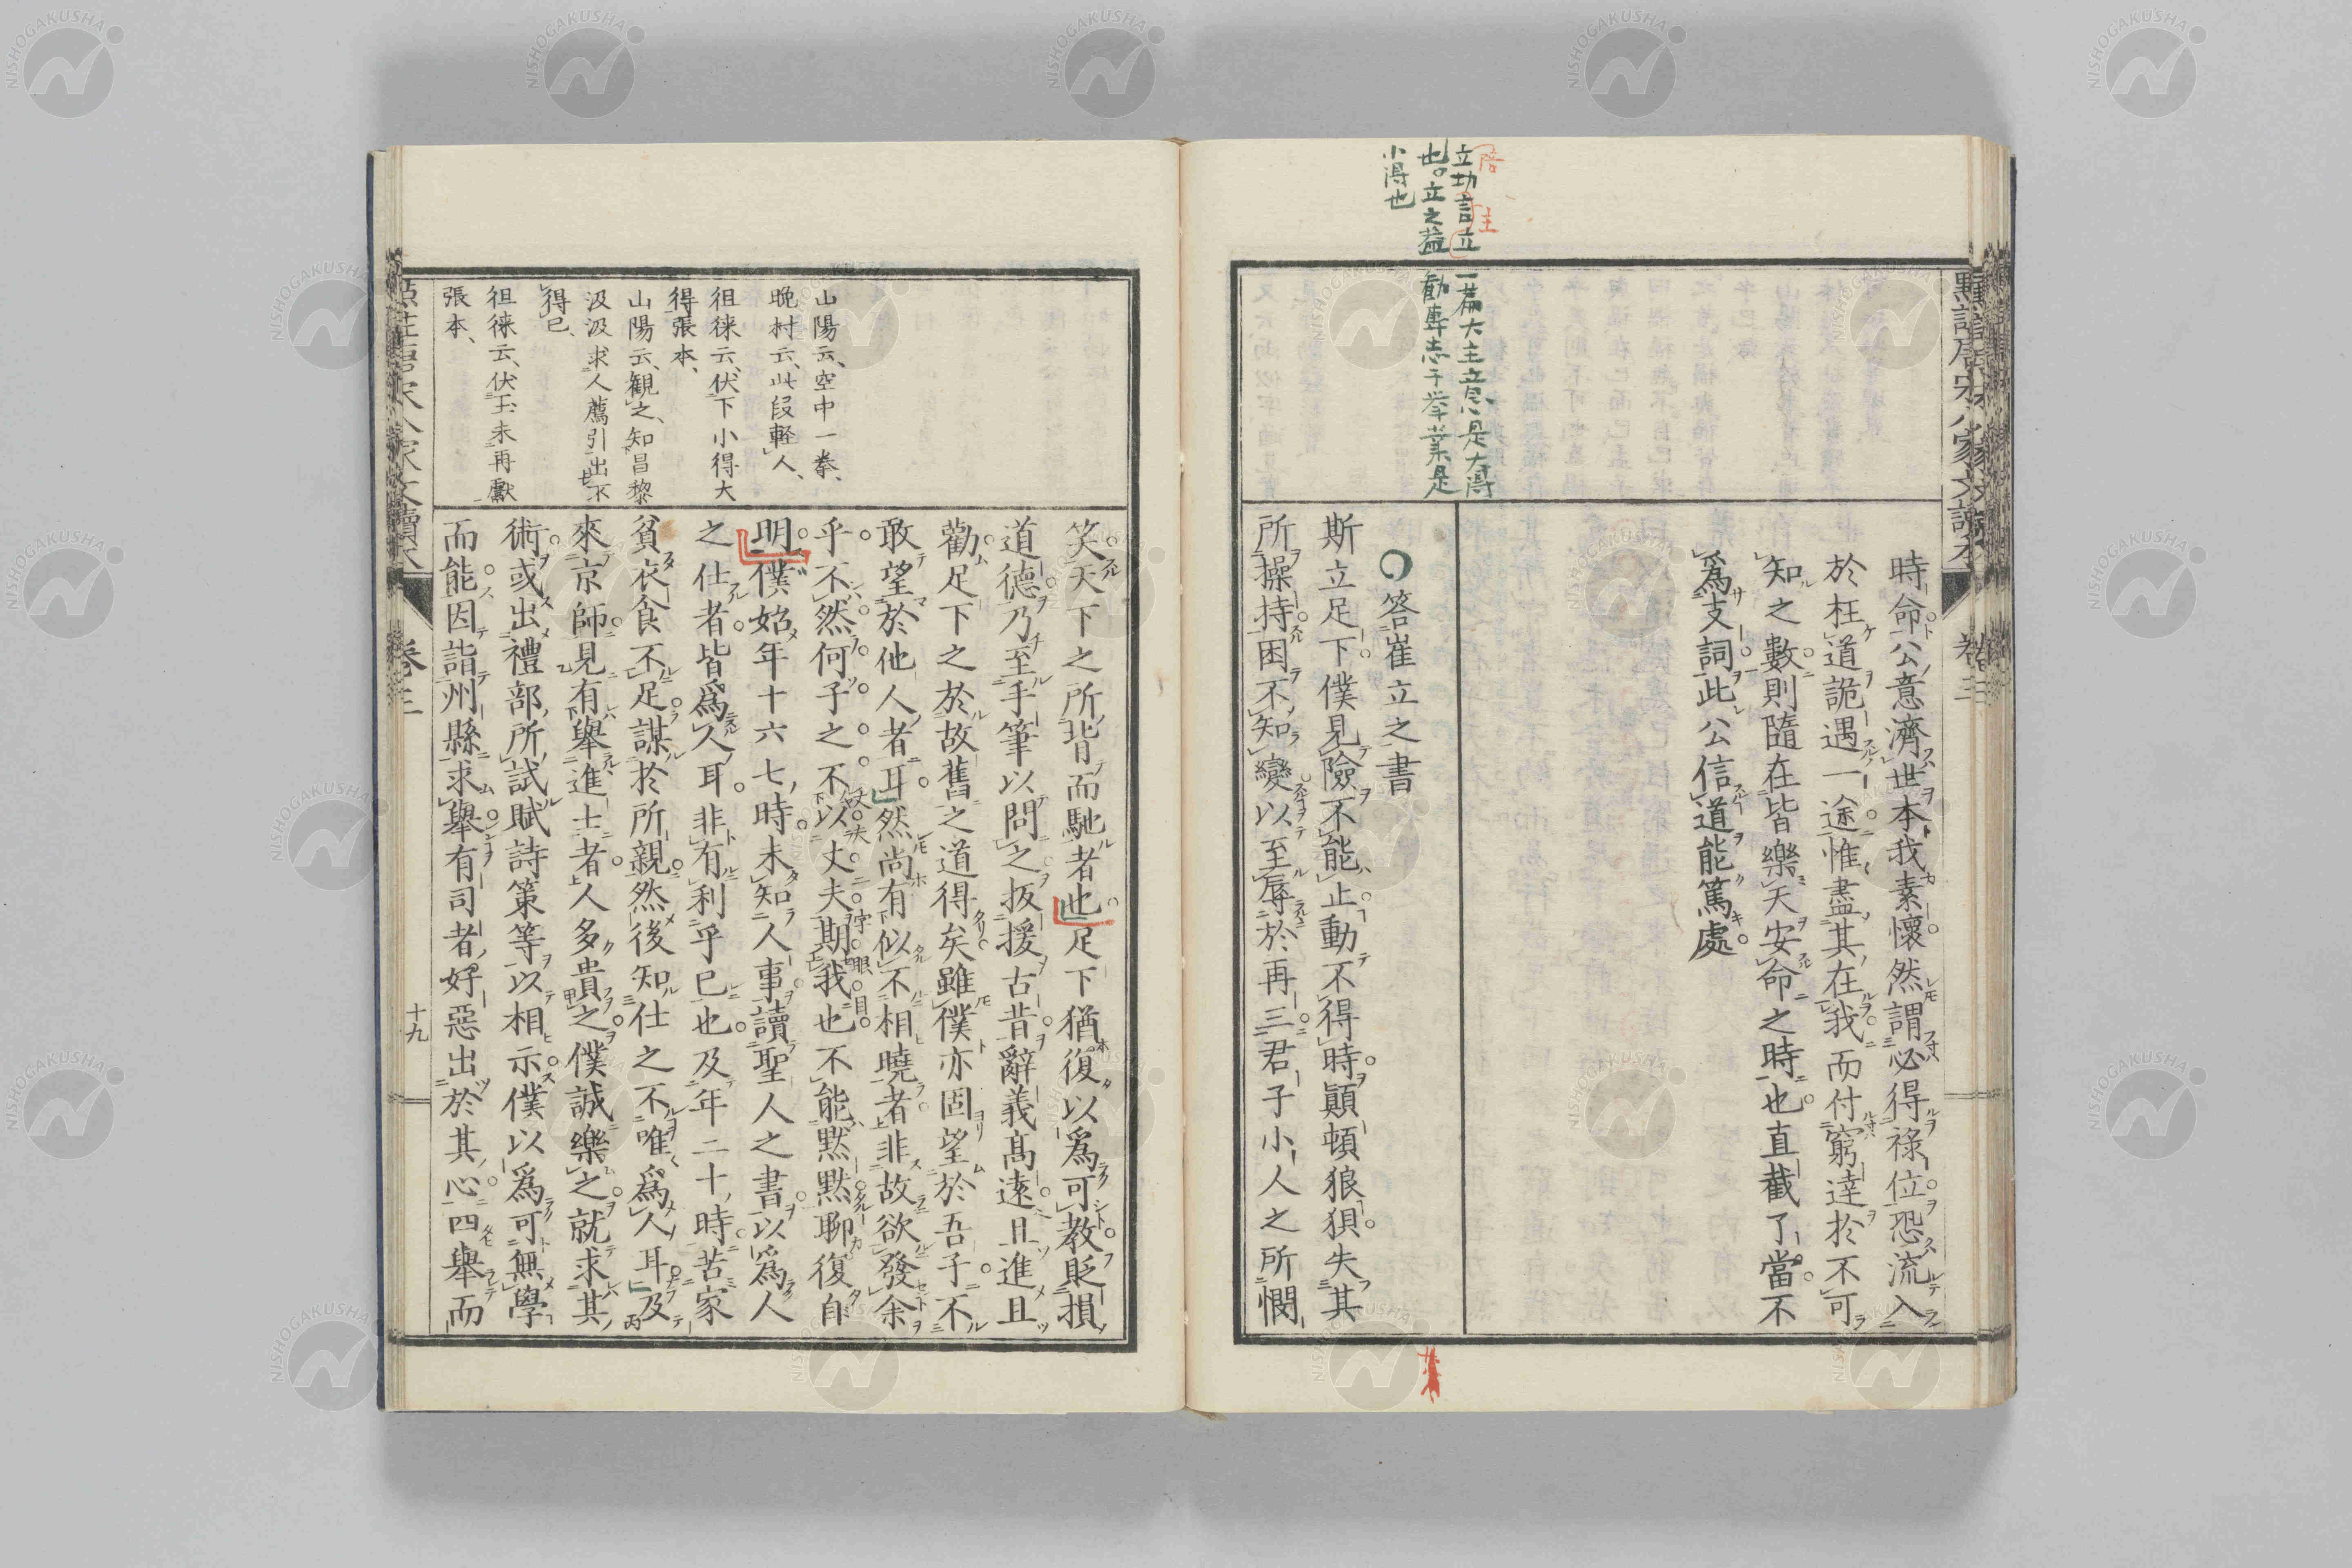 點註唐宋八家文讀本
卷三
時命公意濟世本我素懷然謂必得祿位恐流入
於枉道詭遇一途惟盡其在我而付窮達於不可
知之數則隨在皆樂天安命之時也直截了當不
爲支詞此公信道能篤處
立功言立一篇大主意是大得
也立之益勸專志于挙業是
小得也
主
答崔立之書
斯立足下僕見險不能止動不得時顚頓狼狽失其
所操持困不知變以至辱於再三君子小人之所憫
笑天下之所背而馳者也足下猶復以爲可教貶損
道德乃至手筆以問之扳援古昔辭義高遠且進且
勸足下之於故舊之道得矣雖僕亦固望於吾子不
敢望於他人者耳然尚有似不相曉者非故欲發余
乎不然何子之不以丈夫期我也不能黙黙聊復自
明僕始年十六七時未知人事讀聖人之書以爲人
之仕者皆爲人耳非有利乎已也及年二十時苦家
貧衣食不足謀於所親然後知仕之不唯爲人耳及
來京師見有舉進士者人多貴之僕誠樂之就求其
術或出禮部所試賦詩策等以相示僕以爲可無學
而能因詣州縣求舉有司者好惡出於其心四舉而
山陽云空中一拳、
晩村云、此段軽人、
徂徠云、伏下小得大
得張本、
山陽云、観之、知昌黎
汲汲求人薦引出不
得已、
徂徠云、伏玉未再獻
張本、
卷三
十九
NISHOGAKUSHA